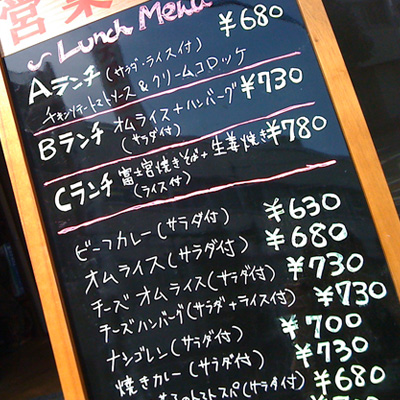 営業
Lunch Menu
Aランチ (サラダ・ライス付) ¥680
チキンソテートマトソース & クリームコロッケ
Bランチ オムライス+ハンバーグ ¥730
(サラダ付)
Cランチ 富士宮焼きそば+生姜焼き ¥780
(ライス付)
ビーフカレー(サラダ付) ¥630
オムライス(サラダ付) ¥680
チーズオムライス(サラダ付) ¥730
チーズハンバーグ(サラダ+ライス付) ¥730
ナシゴレン(サラダ付) ¥700
焼きカレー(サラダ付) ¥730
のトマトスパ(サラダ付) ¥680